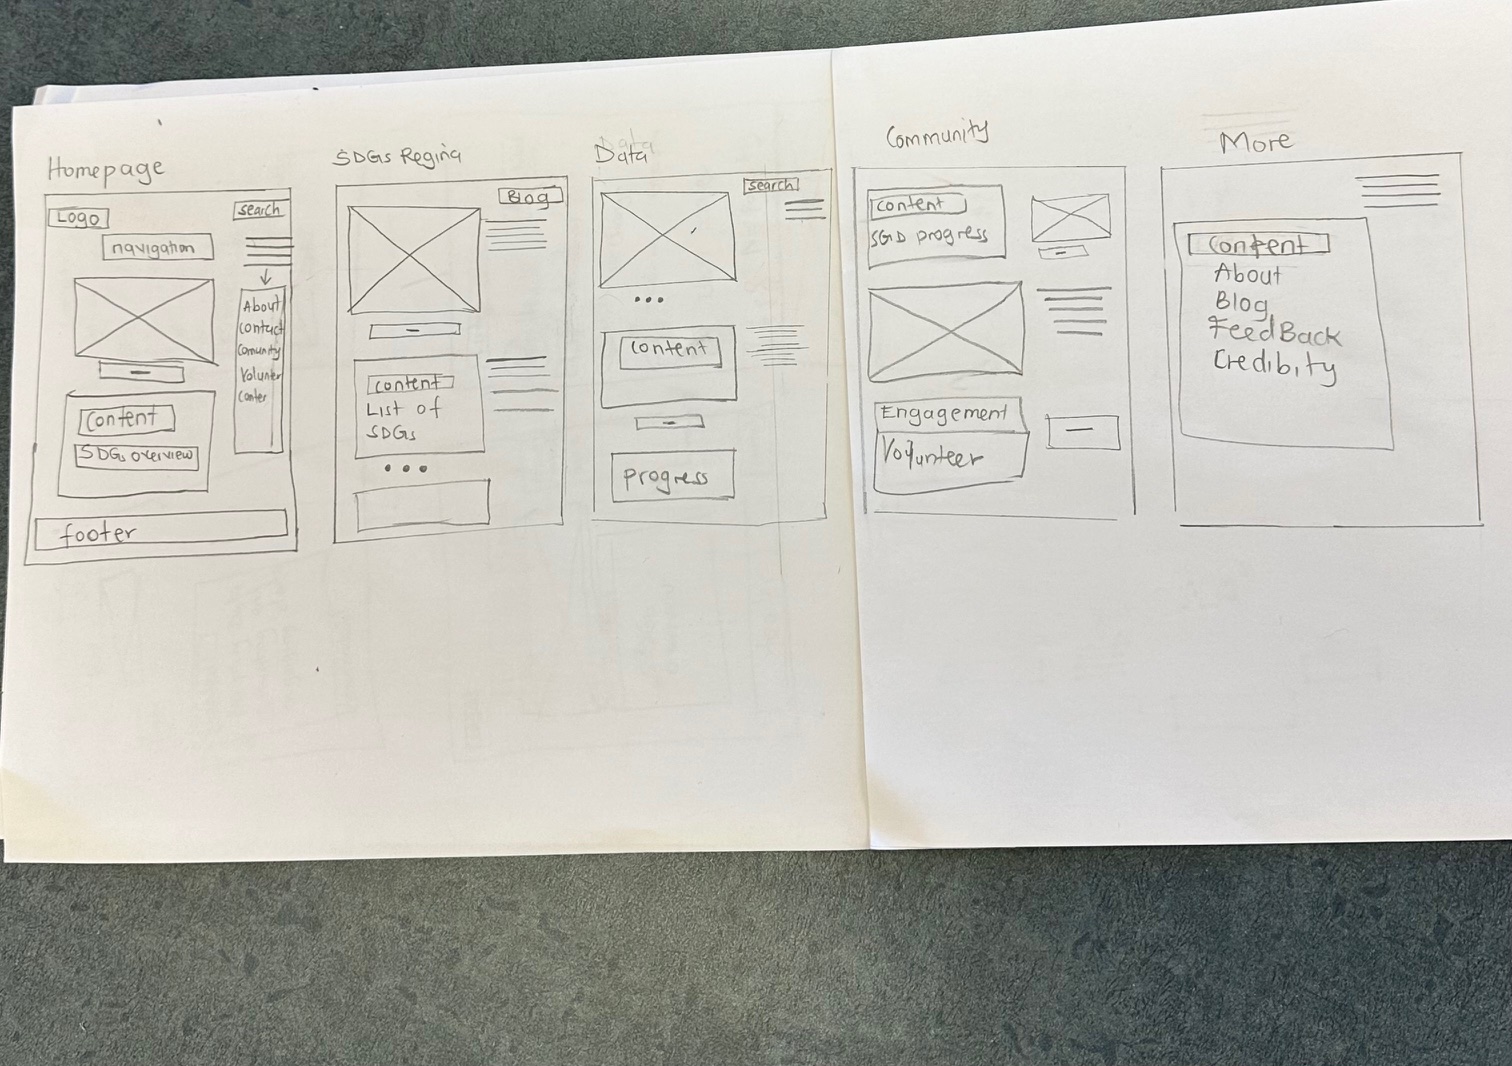 Homepage
Logo
search
navigation
About
Contact
Comunity
Volunter
Center
Content
SDGs overview
footer
SDGs Regina
Blog
content
List of
SDGs
Data
search
content
progress
Community
content
SGD progress
Engagement
Volunteer
More
Content
About
Blog
FeedBack
Credibity